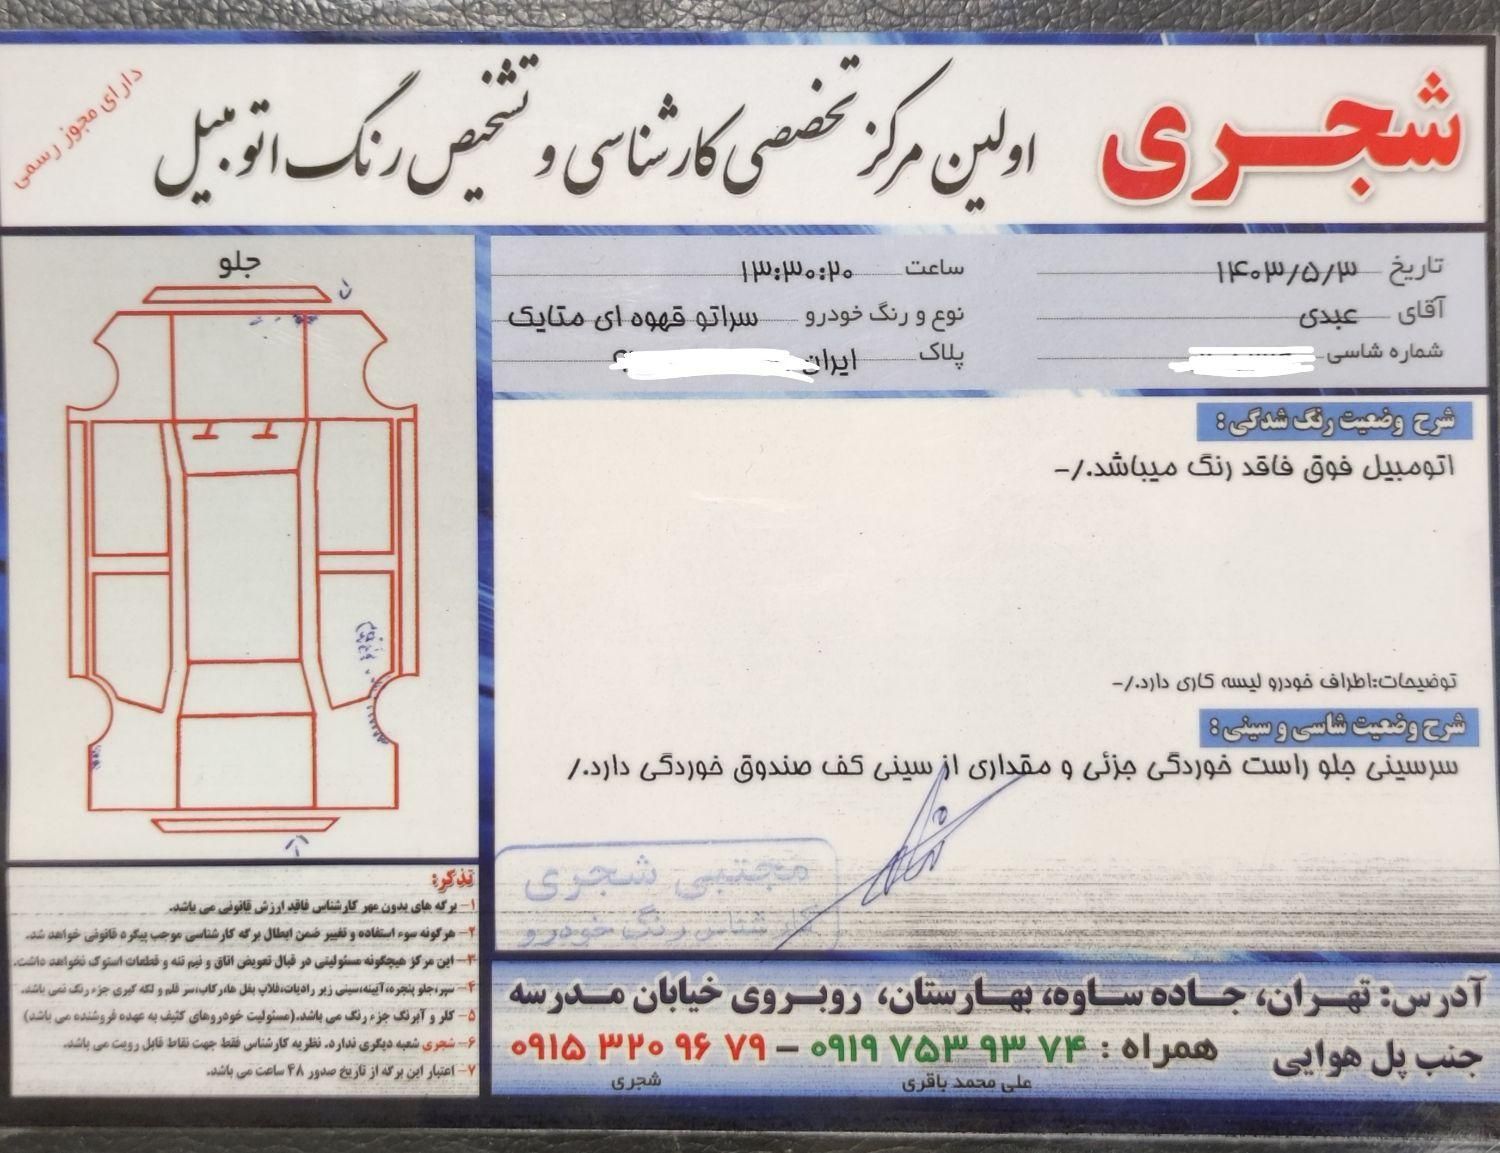 شجری
اولین مرکز تخصصی کارشناسی و تشخیص رنگ اتومبیل
دارای مجوز رسمی
تاریخ ۱۴۰۳/۵/۳
ساعت ۱۳:۳۰:۲۰
آقای عبدی
نوع و رنگ خودرو سراتو قهوه ای متالیک
شماره شاسی
پلاک ایران
جلو
شرح وضعیت رنگ شدگی :
اتومبیل فوق فاقد رنگ میباشد./-
توضیحات:اطراف خودرو لیسه کاری دارد./-
شرح وضعیت شاسی و سینی :
سرسینی جلو راست خوردگی جزئی و مقداری از سینی کف صندوق خوردگی دارد./
مجتبی شجری
کارشناس رنگ خودرو
تذکر:
۱- برگه های بدون مهر کارشناس فاقد ارزش قانونی می باشد.
۲- هرگونه سوء استفاده و تغییر ضمن ابطال برگه کارشناسی موجب پیگرد قانونی خواهد شد.
۳- این مرکز هیچگونه مسئولیتی در قبال تعویض اتاق و نیم تنه و قطعات استوک نخواهد داشت.
۴- سپر،جلو پنجره،آیینه،سینی زیر رادیات،فلاپ بغل ها،رکاب،سر قلم و لکه گیری جزء رنگ نمی باشد.
۵- کلر و آبرنگ جزء رنگ می باشد.(مسئولیت خودروهای کثیف به عهده فروشنده می باشد)
۶- شجری شعبه دیگری ندارد. نظریه کارشناس فقط جهت نقاط قابل رویت می باشد.
۷- اعتبار این برگه از تاریخ صدور ۴۸ ساعت می باشد.
آدرس: تهران، جاده ساوه، بهارستان، روبروی خیابان مدرسه
جنب پل هوایی
همراه : ۰۹۱۹ ۷۵۳ ۹۳ ۷۴ – ۰۹۱۵ ۳۲۰ ۹۶ ۷۹
علی محمد باقری
شجری